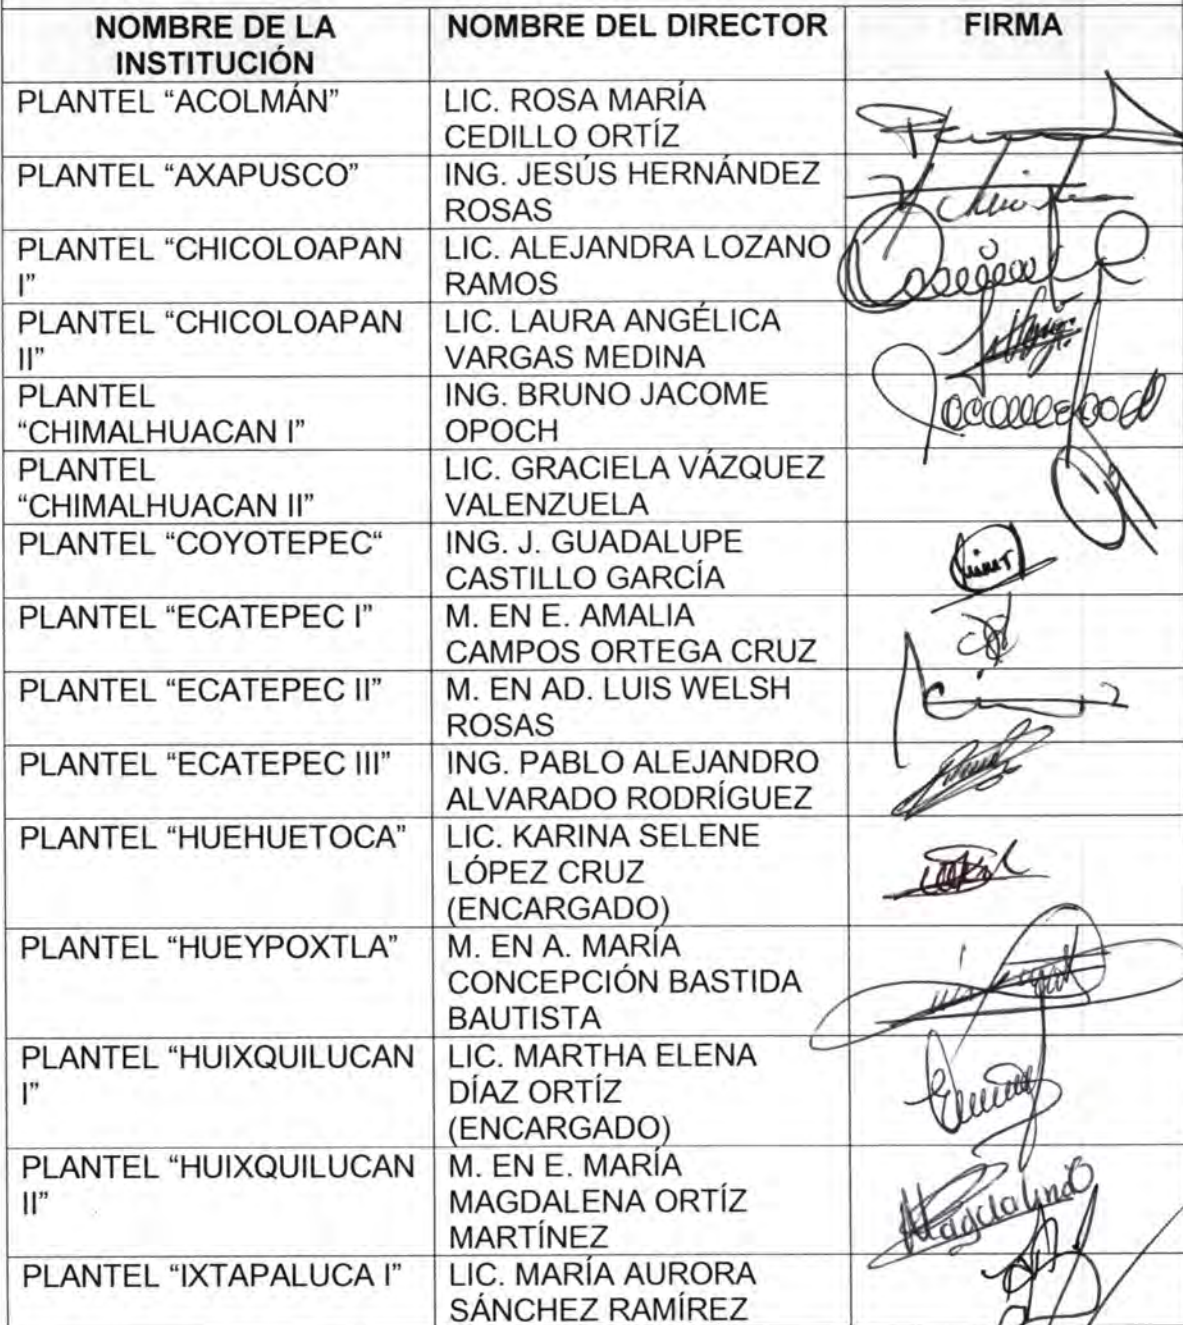 NOMBRE DE LA
INSTITUCIÓN
NOMBRE DEL DIRECTOR
FIRMA
PLANTEL “ACOLMÁN”
LIC. ROSA MARÍA
CEDILLO ORTÍZ
PLANTEL “AXAPUSCO”
ING. JESÚS HERNÁNDEZ
ROSAS
PLANTEL “CHICOLOAPAN
I”
LIC. ALEJANDRA LOZANO
RAMOS
PLANTEL “CHICOLOAPAN
II”
LIC. LAURA ANGÉLICA
VARGAS MEDINA
PLANTEL
“CHIMALHUACAN I”
ING. BRUNO JACOME
OPOCH
PLANTEL
“CHIMALHUACAN II”
LIC. GRACIELA VÁZQUEZ
VALENZUELA
PLANTEL “COYOTEPEC“
ING. J. GUADALUPE
CASTILLO GARCÍA
PLANTEL “ECATEPEC I”
M. EN E. AMALIA
CAMPOS ORTEGA CRUZ
PLANTEL “ECATEPEC II”
M. EN AD. LUIS WELSH
ROSAS
PLANTEL “ECATEPEC III”
ING. PABLO ALEJANDRO
ALVARADO RODRÍGUEZ
PLANTEL “HUEHUETOCA”
LIC. KARINA SELENE
LÓPEZ CRUZ
(ENCARGADO)
PLANTEL “HUEYPOXTLA”
M. EN A. MARÍA
CONCEPCIÓN BASTIDA
BAUTISTA
PLANTEL “HUIXQUILUCAN
I”
LIC. MARTHA ELENA
DÍAZ ORTÍZ
(ENCARGADO)
PLANTEL “HUIXQUILUCAN
II”
M. EN E. MARÍA
MAGDALENA ORTÍZ
MARTÍNEZ
PLANTEL “IXTAPALUCA I”
LIC. MARÍA AURORA
SÁNCHEZ RAMÍREZ